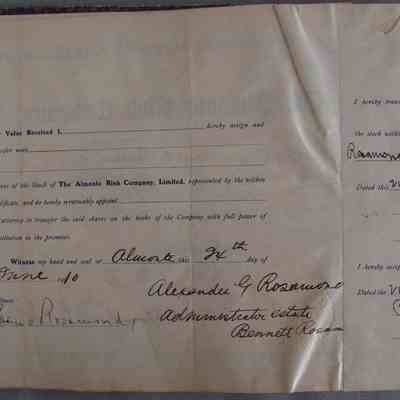 Value Received I, hereby assign and
nsfer unto
ares of the Stock of The Almonte Rink Company, Limited, represented by the within
rtificate, and do hereby irrevocably appoint
attorney to transfer the said shares on the books of the Company with full power of
stitution in the premises.
Witness my hand and seal at Almonte this 24th day of
June 10
Alexander G Rosamond
Rosamond
Administrator estate
Bennett Rosam
I hereby trans
the stock within
Rosamond
Dated this
I hereby accept
Dated the